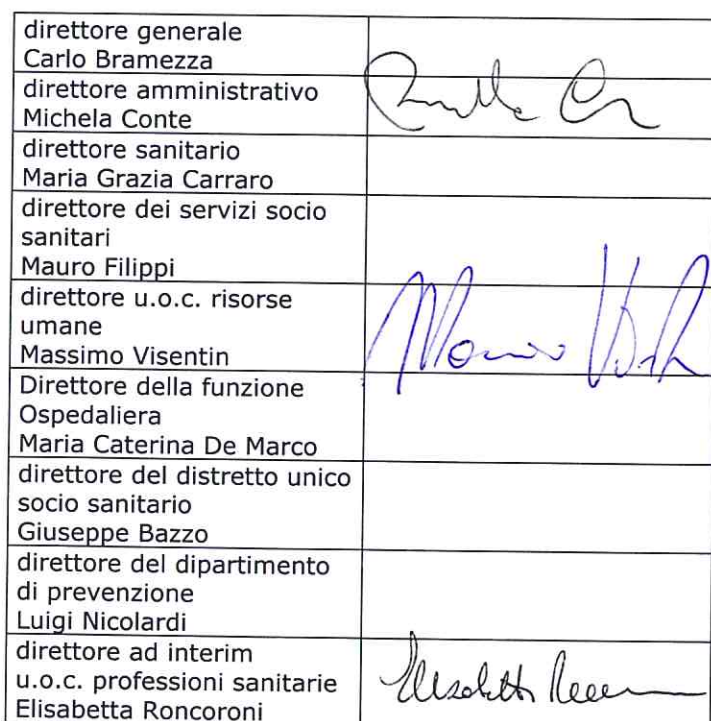 direttore generale
Carlo Bramezza
direttore amministrativo
Michela Conte
direttore sanitario
Maria Grazia Carraro
direttore dei servizi socio
sanitari
Mauro Filippi
direttore u.o.c. risorse
umane
Massimo Visentin
Direttore della funzione
Ospedaliera
Maria Caterina De Marco
direttore del distretto unico
socio sanitario
Giuseppe Bazzo
direttore del dipartimento
di prevenzione
Luigi Nicolardi
direttore ad interim
u.o.c. professioni sanitarie
Elisabetta Roncoroni